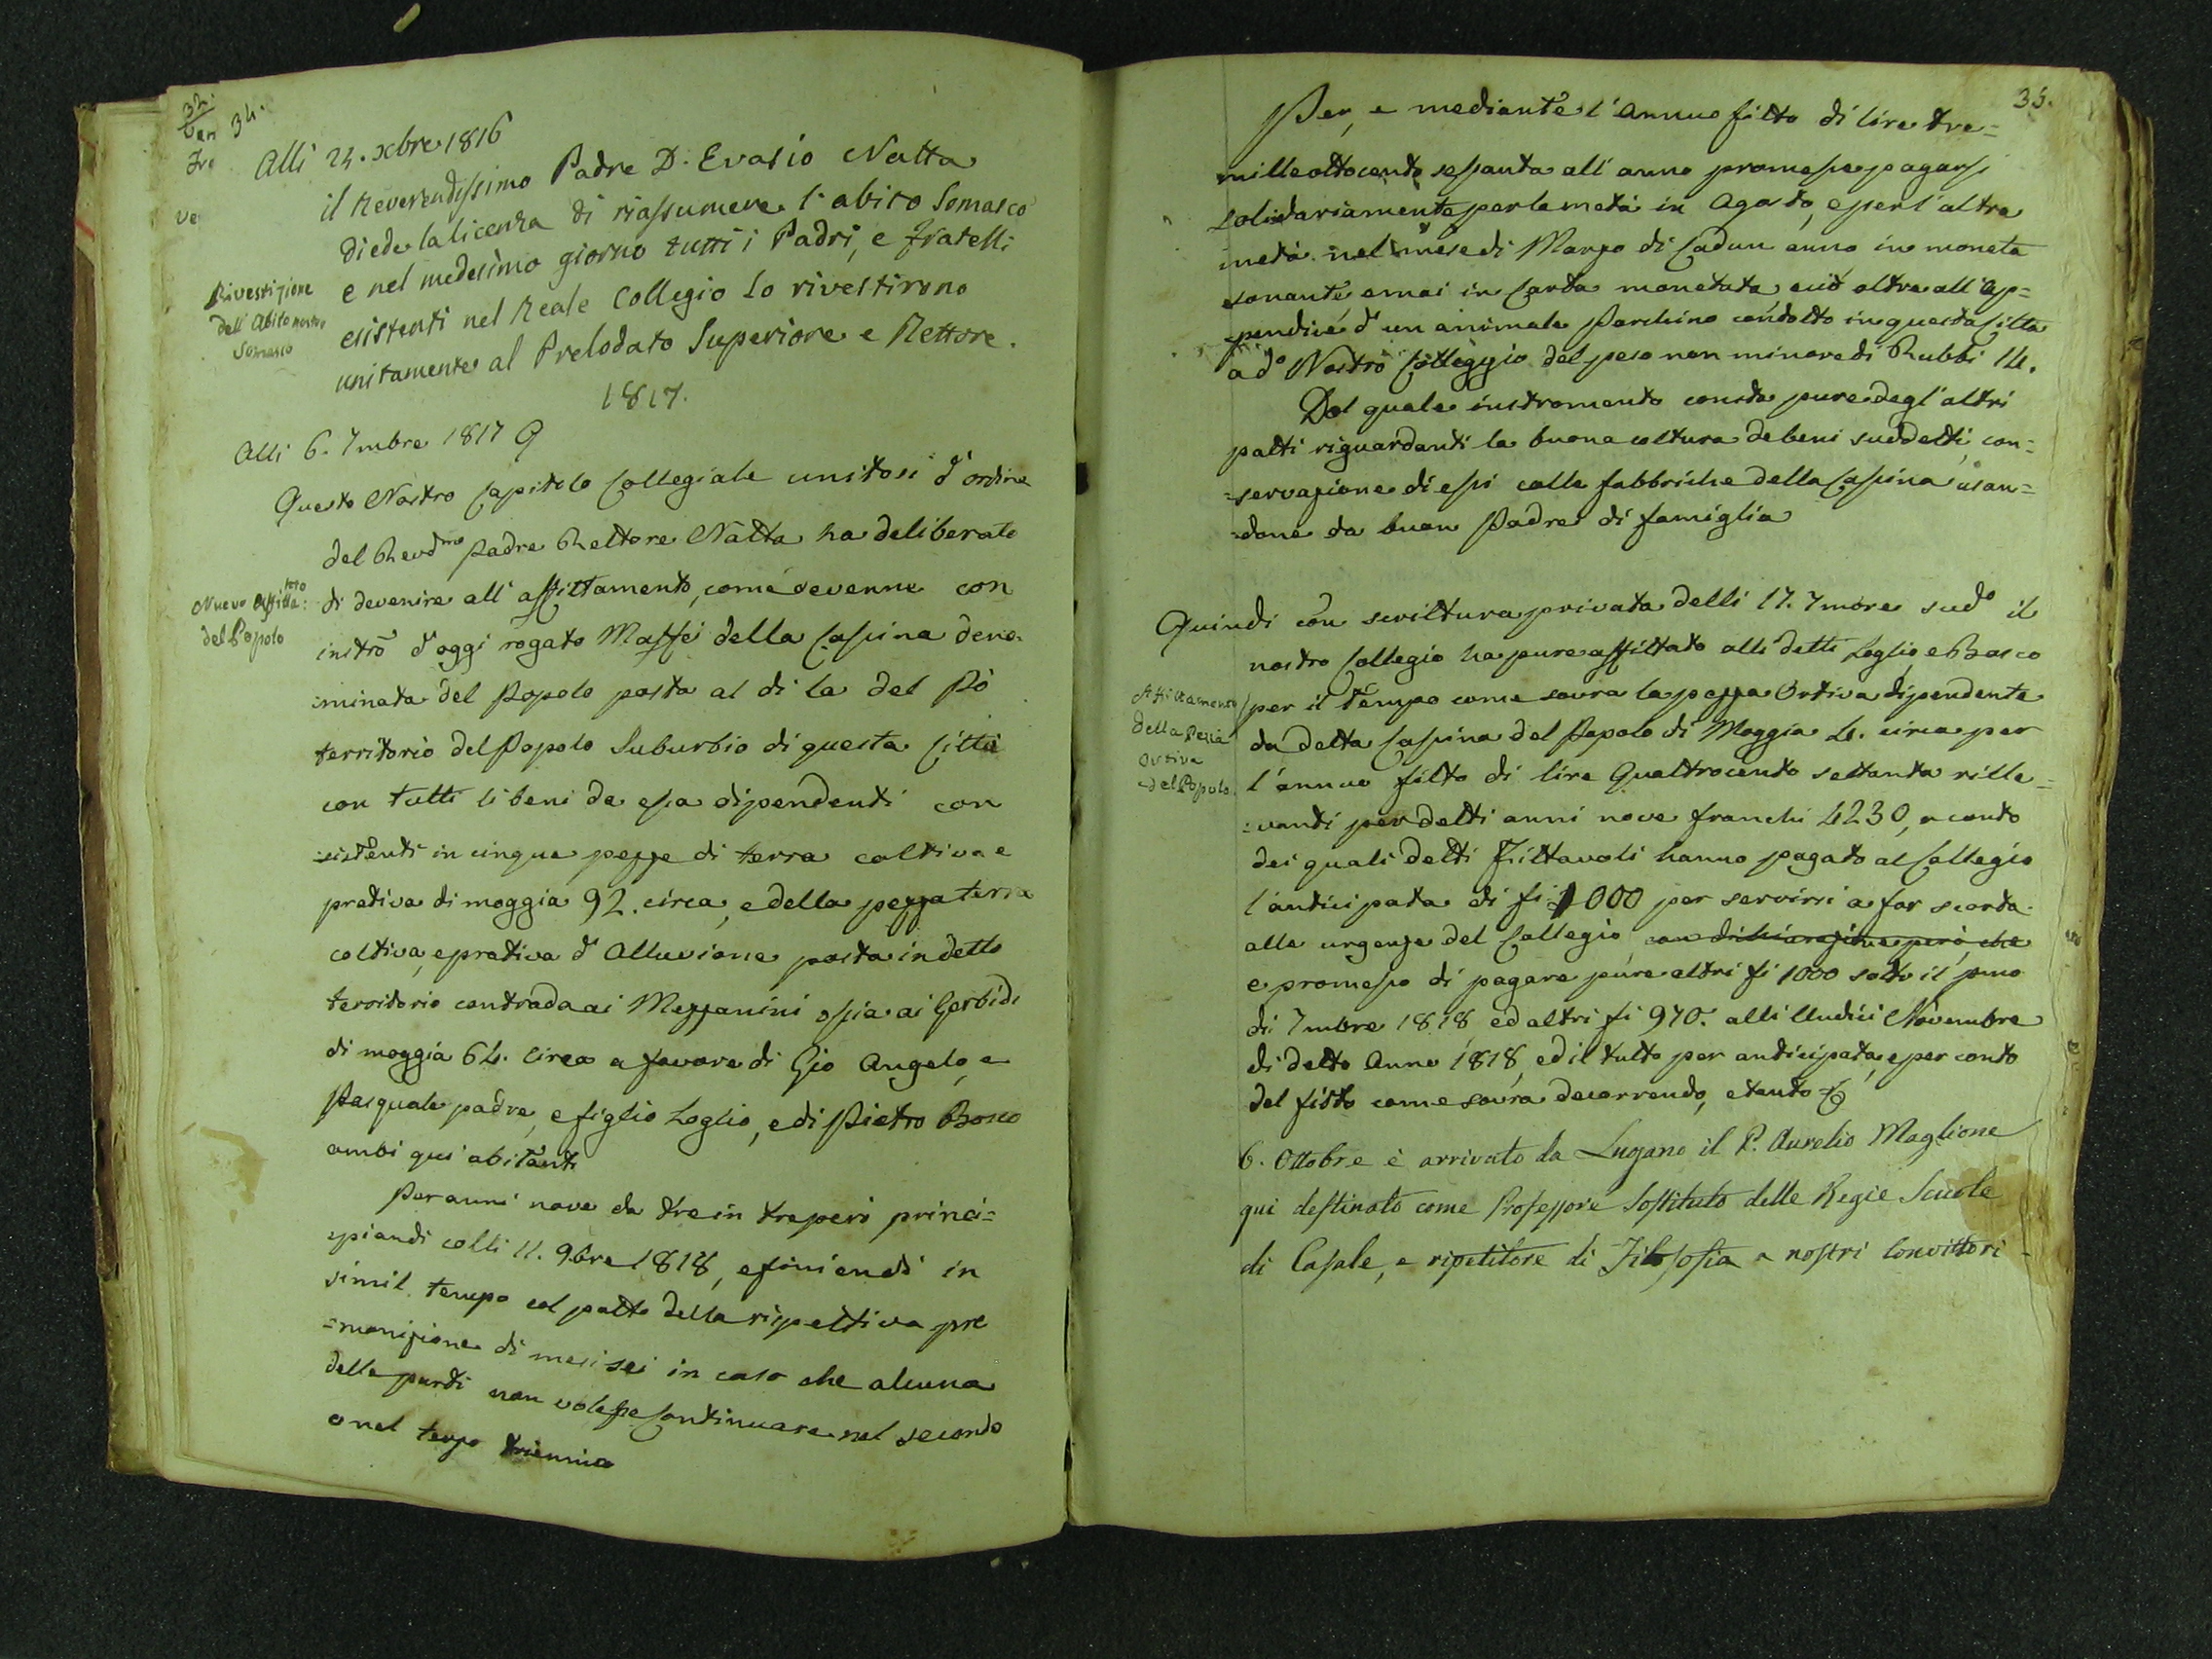 34.
Alli 24. xbre 1816
il Reverendissimo Padre D. Evasio Natta
diede la licenza di riassumere l'abito Somasco
e nel medesimo giorno tutti i Padri, e fratelli
esistenti nel Reale Collegio lo rivestirono
unitamente al Prelodato Superiore e Rettore.
Rivestizione
dell'Abito nostro
Somasco
1817.
Alli 6. 7mbre 1817
Questo Nostro Capitolo Collegiale unitosi d'ordine
del Revdmo Padre Rettore Natta ha deliberato
di devenire all'affittamento, come devenne con
instro d'oggi rogato Maffei della Cassina deno-
:minata del Popolo posta al di la del Pò
territorio del Popolo Suburbio di questa Città
con tutti li beni da essa dipendenti con
:sistenti in cinque pezze di terra coltiva e
prativa di moggia 92. circa, e della pezza terra
coltiva, e prativa d'Alluvione posta in detto
territorio contrada ai Mezzanini ossia ai Gerbidi
di moggia 64. circa a favore di Gio Angelo, e
Pasquale padre, e figlio Loglio, e di Pietro Bosco
ambi qui abitanti
Nuovo Affitta:
mto
del Popolo
Per anni nove da tre in tre però princi=
piandi colli 11. 9bre 1818, e finiendi in
simil tempo col patto della rispettiva pre
=monizione di mesi sei in caso che alcuna
delle parti non volesse Continuare nel secondo
o nel terzo triennio
35.
Per, e mediante l'annuo fitto di lire tre=
milleottocento sessanta all'anno promesse pagarsi
solidariamente per la metà in Agosto, e per l'altra
metà nel mese di Marzo di Cadun anno in moneta
sonante, e mai in Carta monetata, e ciò oltre all'Ap=
pendice d'un animale Porchino condotto in questa Città
a do Nostro Colleggio del peso non minore di Rubbi 14.
Dal quale instromento consta pure degl'altri
patti riguardanti la buona coltura de beni suddetti, con=
=servazione di essi colle fabbriche della Cassina usan=
=done da buon Padre di famiglia
Quindi con scrittura privata delli 17. 7mbre sudo il
nostro Collegio ha pure affittato alli detti Loglio, e Bosco
per il tempo come sovra la pezza Ortiva dipendente
da detta Cassina del Popolo di Moggia 4. circa per
l'annuo fitto di lire Quattrocento settanta rille=
:vanti per detti anni nove franchi 4230, a conto
dei quali detti Fittavoli hanno pagato al Collegio
l'anticipata di fi 1000 per servirsi a far scorta
alle urgenze del Collegio con dichiarazione però, che
e promesso di pagare pure altri fi 1000 sotto il pmo
di 7mbre 1818, ed altri fi 970. alli Undici Novembre
di detto Anno 1818, ed il tutto per anticipata, e per conto
del fitto come sovra decorrendo, e tanto
Affittamento
della Pezza
Ortiva
del Popolo.
6. Ottobre è arrivato da Lugano il P. Aurelio Maglione
qui destinato come Professore Sostituto delle Regie Scuole
di Casale, e ripetitore di Filosofia a nostri Convittori